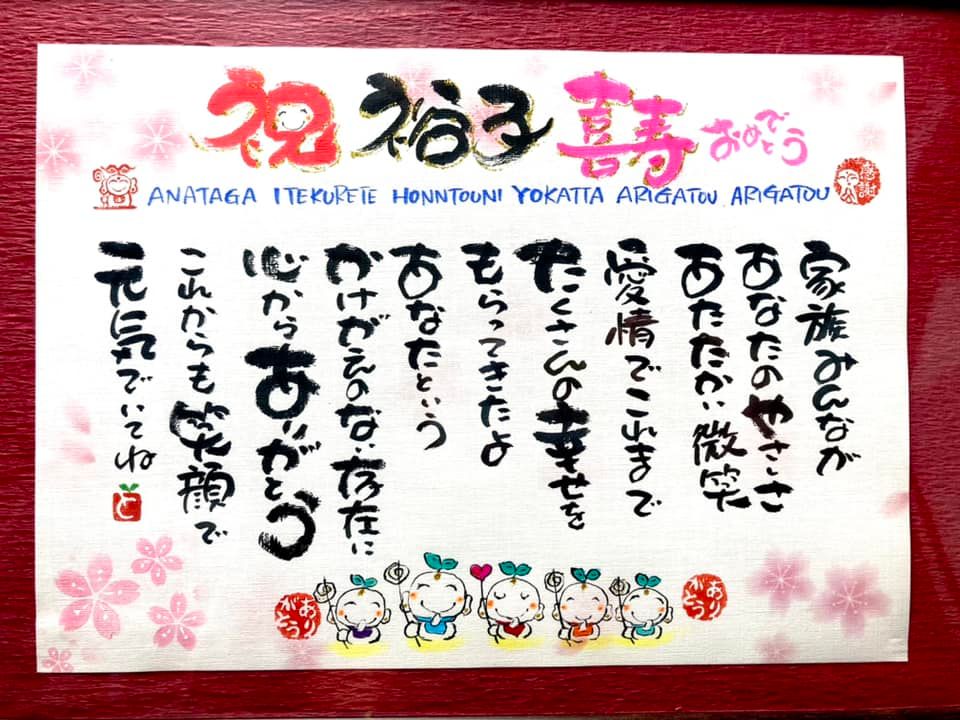 祝 裕子 喜寿 おめでとう
ANATAGA ITEKURETE HONNTOUNI YOKATTA ARIGATOU ARIGATOU
感謝
家族みんなが
あなたのやさしさ
あたたかい微笑
愛情でこれまで
たくさんの幸せを
もらってきたよ
あなたという
かけがえのない存在に
心からありがとう
これからも笑顔で
元気でいてね
と
ありがとう
ありがとう